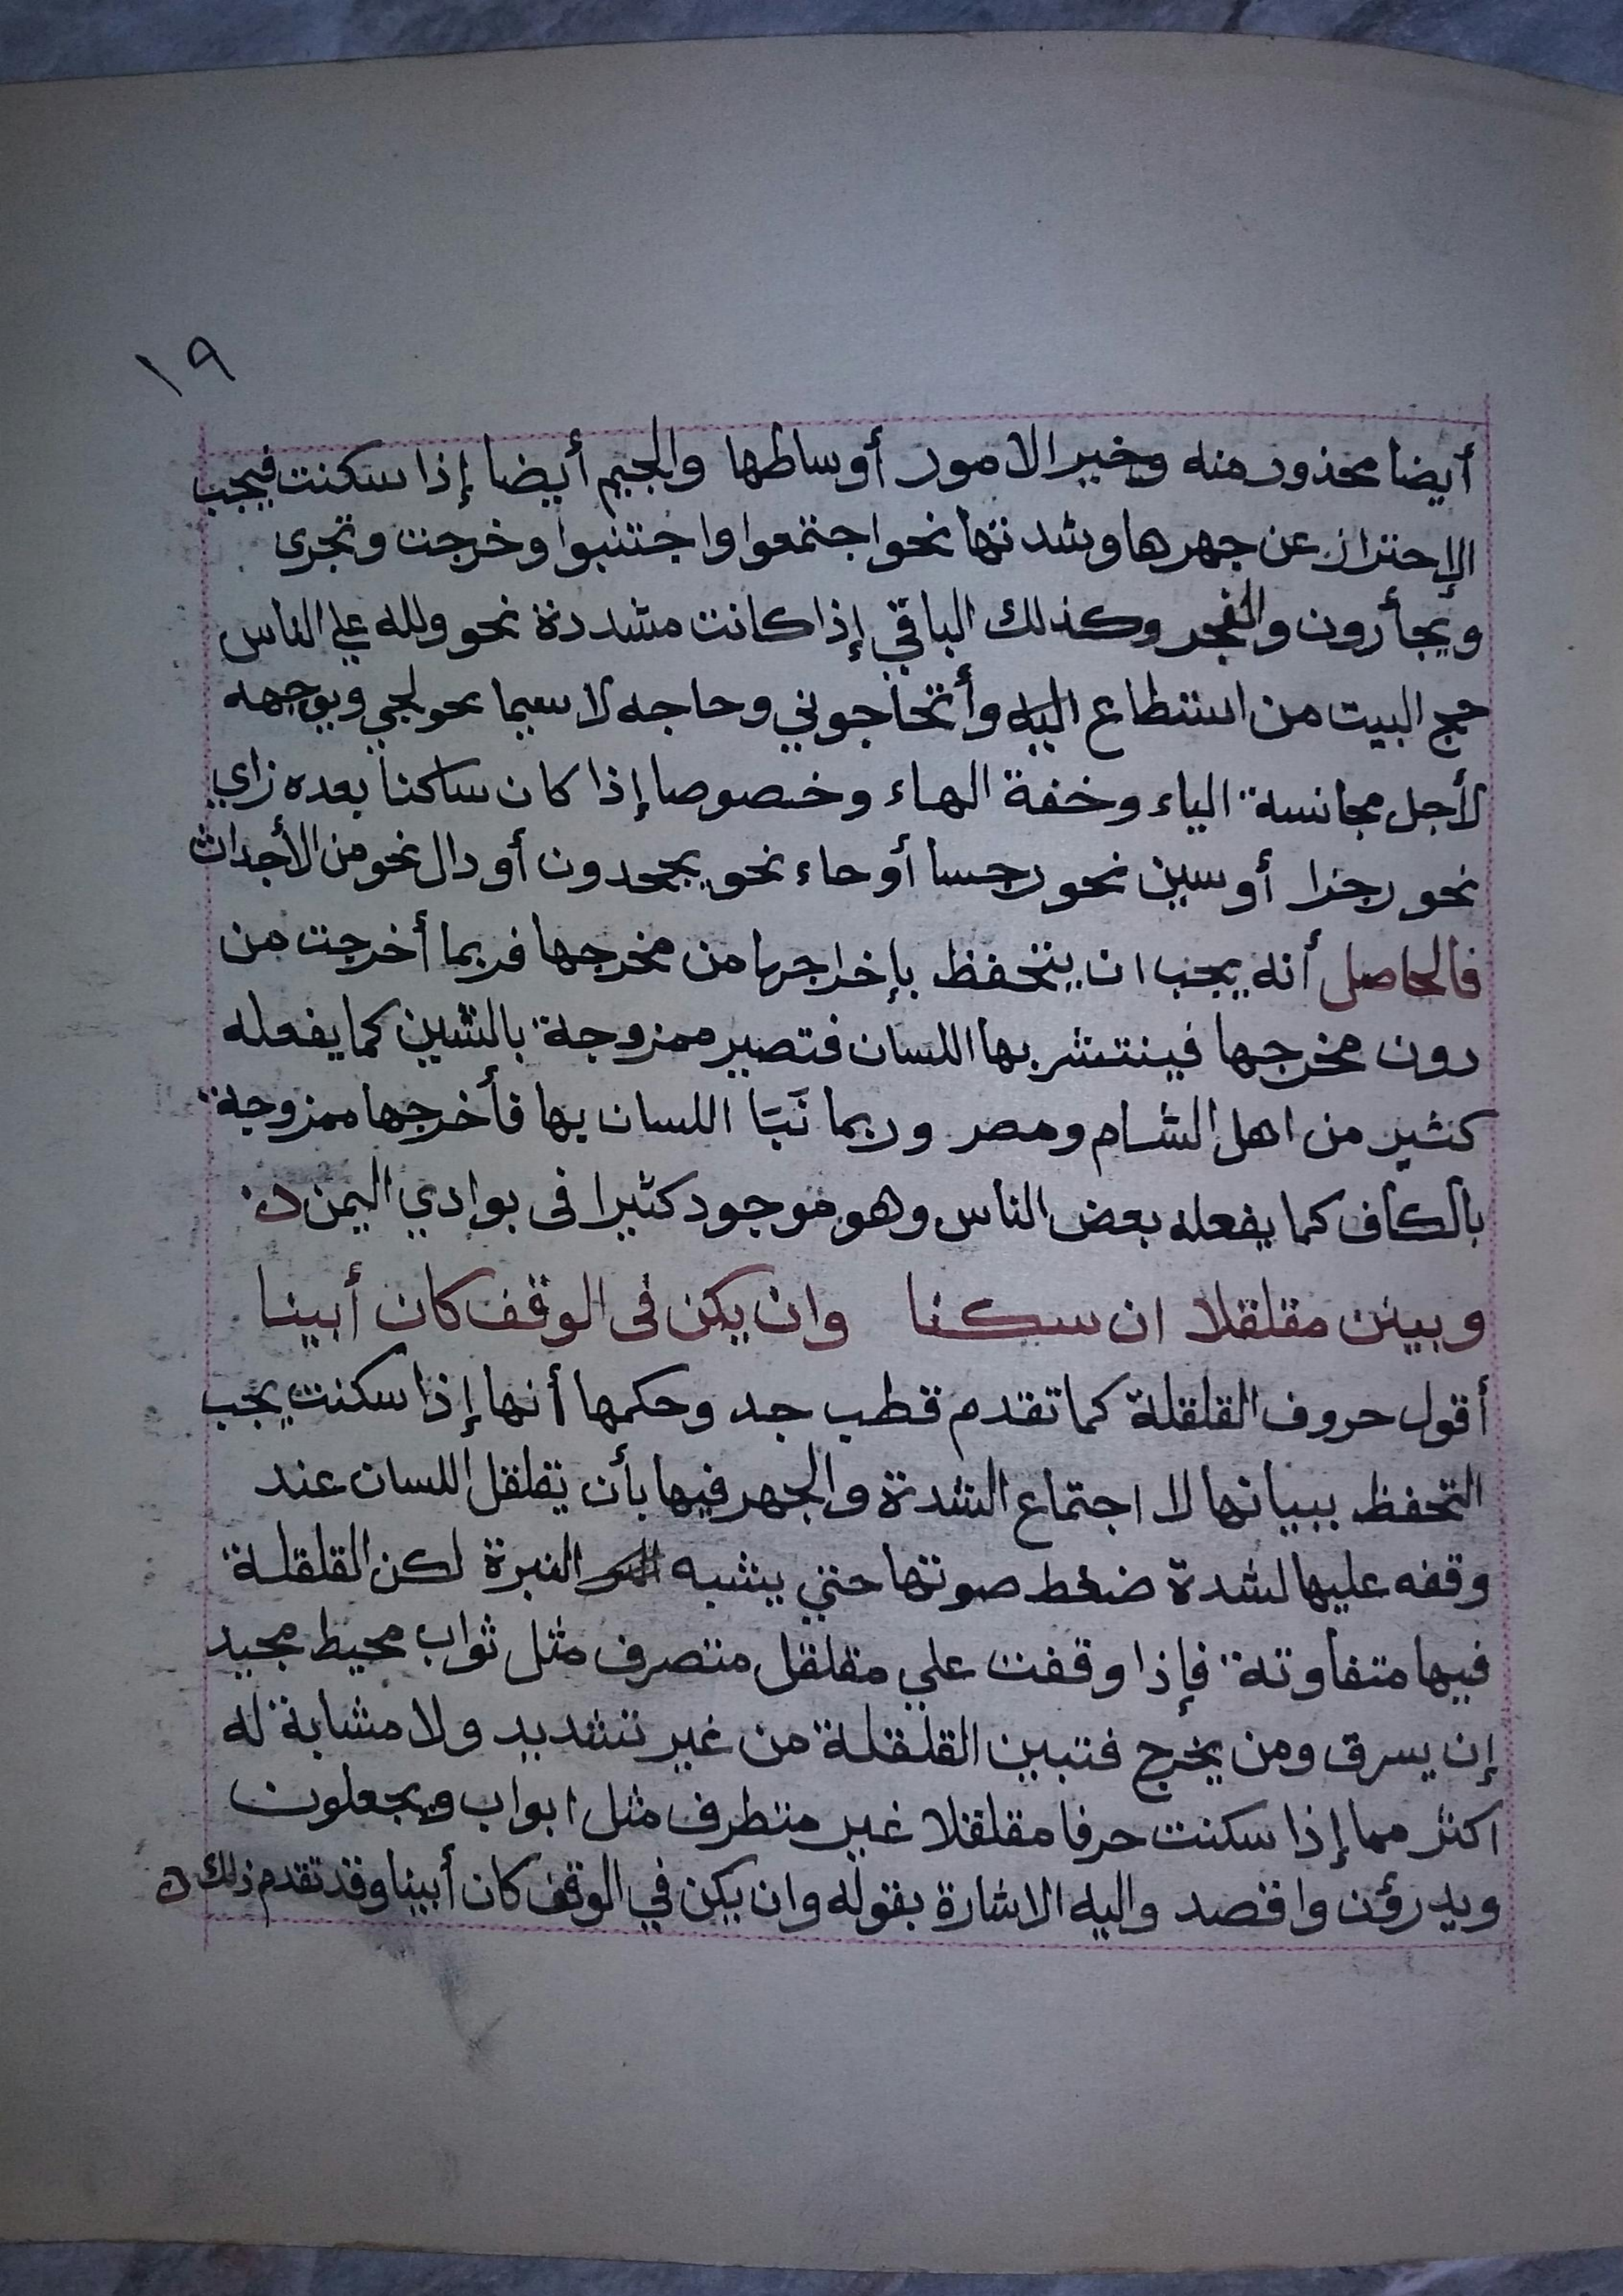 ١٩
أيضا محذور منه وخير الامور أوساطها والجيم أيضا إذا سكنت فيجب
الإحتراز عن جهرها وشدتها نحو اجتمعوا واجتنبوا وخرجت وتجري
ويجأرون والفجر وكذلك الباقي إذا كانت مشددة نحو ولله علي الناس
حج البيت من استطاع اليه وأتحاجوني وحاجه لا سيما نحو لجي ويوجهه
لأجل مجانسة الياء وخفة الهاء وخصوصا إذا كان ساكنا بعده زاي
نحو رجزا أو سين نحو رجسا أو حاء نحو يجحدون أو دال نحو من الأجداث
فالحاصل أنه يجب ان يتحفظ بإخراجها من مخرجها فربما أخرجت من
دون مخرجها فينتشر بها اللسان فتصير ممزوجة بالشين كما يفعله
كثير من اهل الشام ومصر وربما نَبَا اللسان بها فأخرجها ممزوجة
بالكاف كما يفعله بعض الناس وهو موجود كثيرا فى بوادي اليمن
وبينن مقلقلا ان سكنا وان يكن فى الوقف كان أبينا
أقول حروف القلقلة كما تقدم قطب جد وحكمها أنها إذا سكنت يجب
التحفظ ببيانها لا اجتماع الشدة والجهر فيها بأن يقلقل اللسان عند
وقفه عليها لشدة ضغط صوتها حتي يشبه النبرة لكن القلقلة
فيها متفاوتة فإذا وقفت علي مقلقل متصرف مثل ثواب محيط مجيد
إن يسرق ومن يخرج فتبين القلقلة من غير تشديد ولا مشابة له
اكثر مما إذا سكنت حرفا مقلقلا غير متطرف مثل ابواب ويجعلون
ويدرؤن واقصد واليه الاشارة بقوله وان يكن في الوقف كان أبينا وقد تقدم ذلك